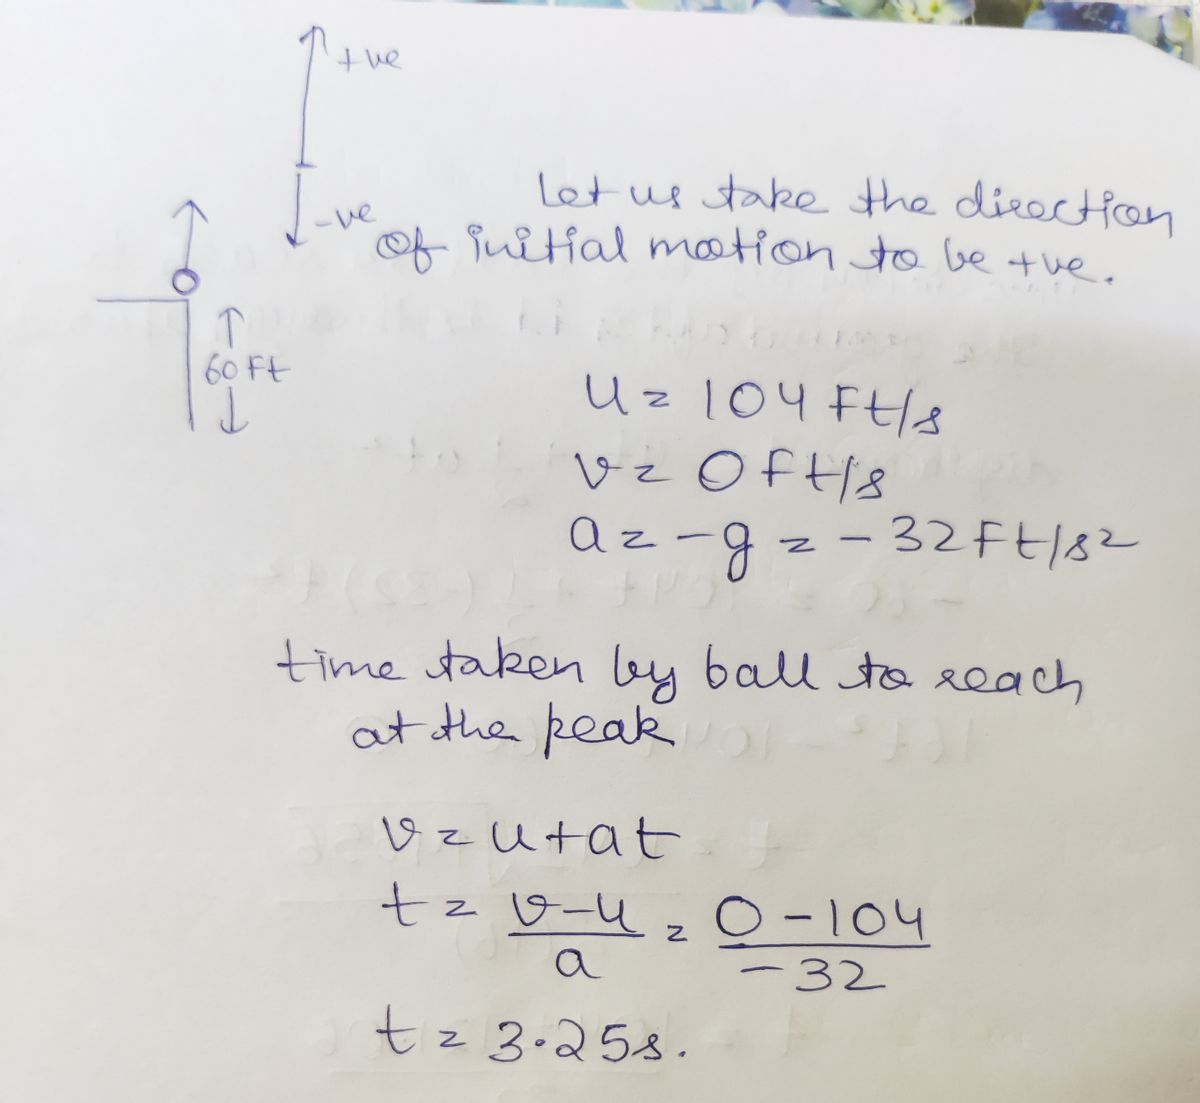 +ve
-ve
Let us take the direction
of initial motion to be +ve.
60 Ft
u = 104 Ft/s
v = 0 ft/s
a = -g = -32 Ft/s²
time taken by ball to reach
at the peak
v = u+at
t = v-u/a = 0-104/-32
t = 3.25s.